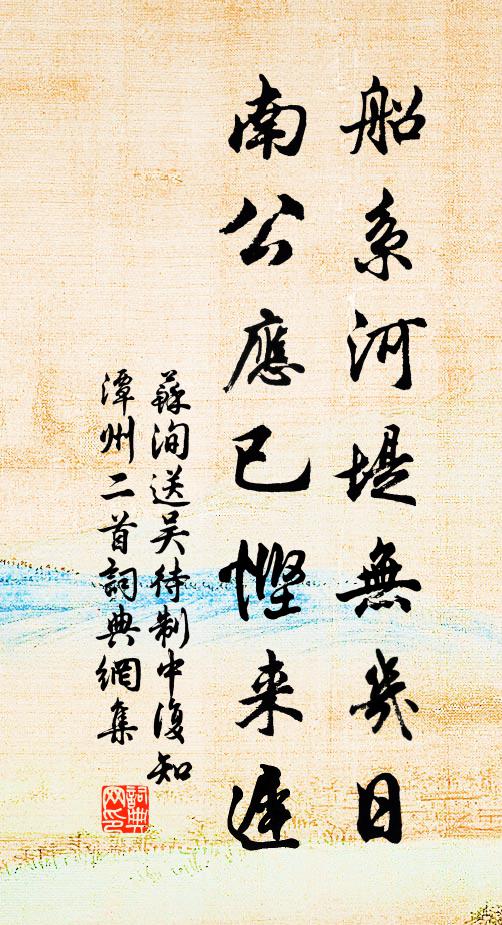 船系河堤無幾日
南公應已慳来遲
蘇洵送吴待制中復知
潭州二首詞典網集
詞典
网印